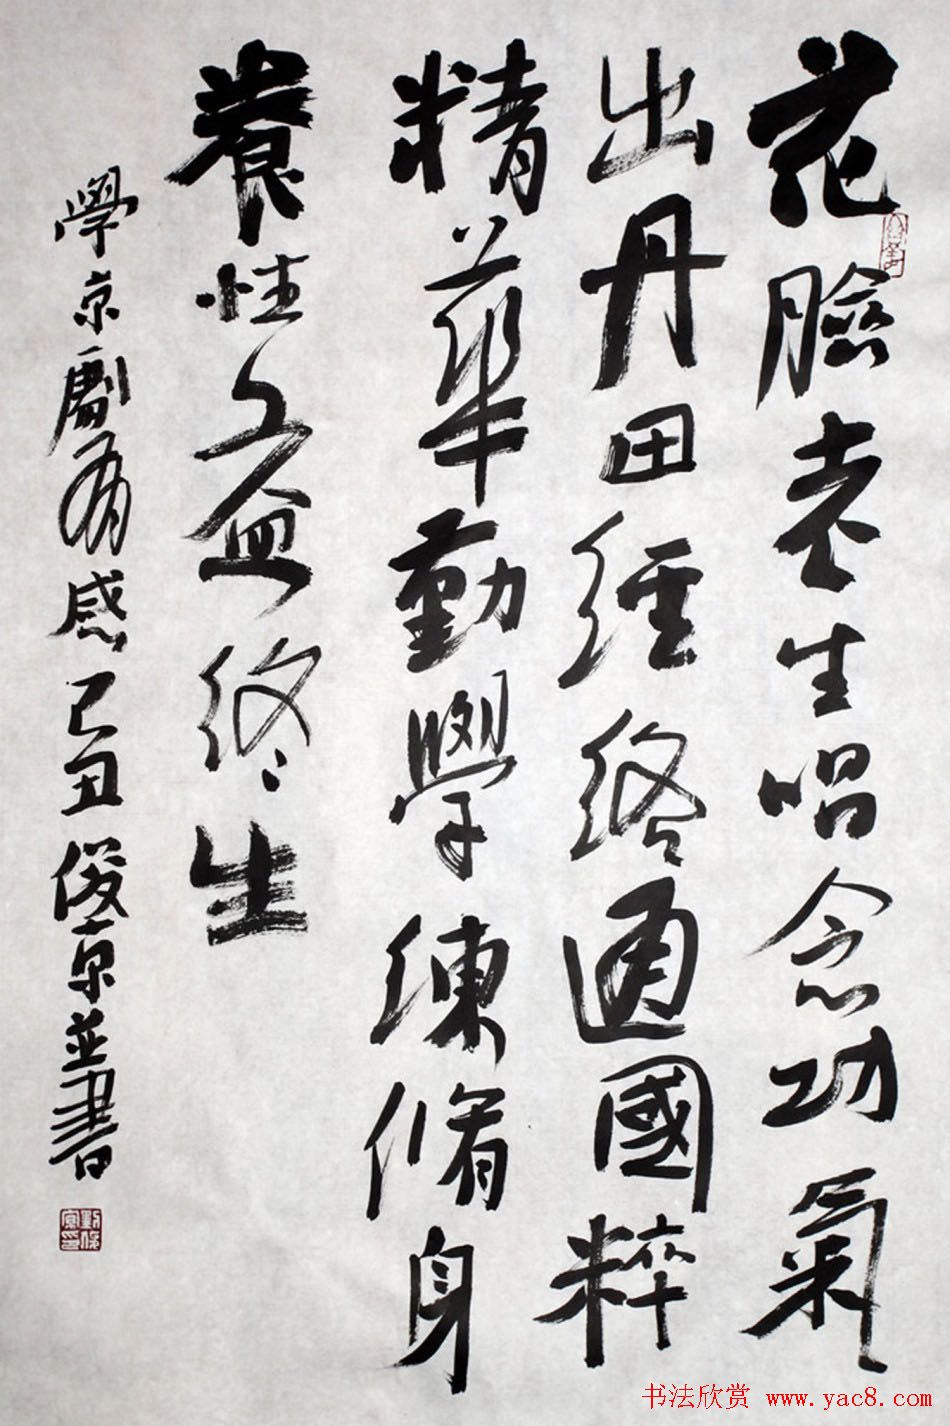 花臉老生唱念功氣
出丹田經絡通國粹
精華勤學練脩身
養性益終生
學京劇有感己丑俊京並書
书法欣赏 www.yac8.com